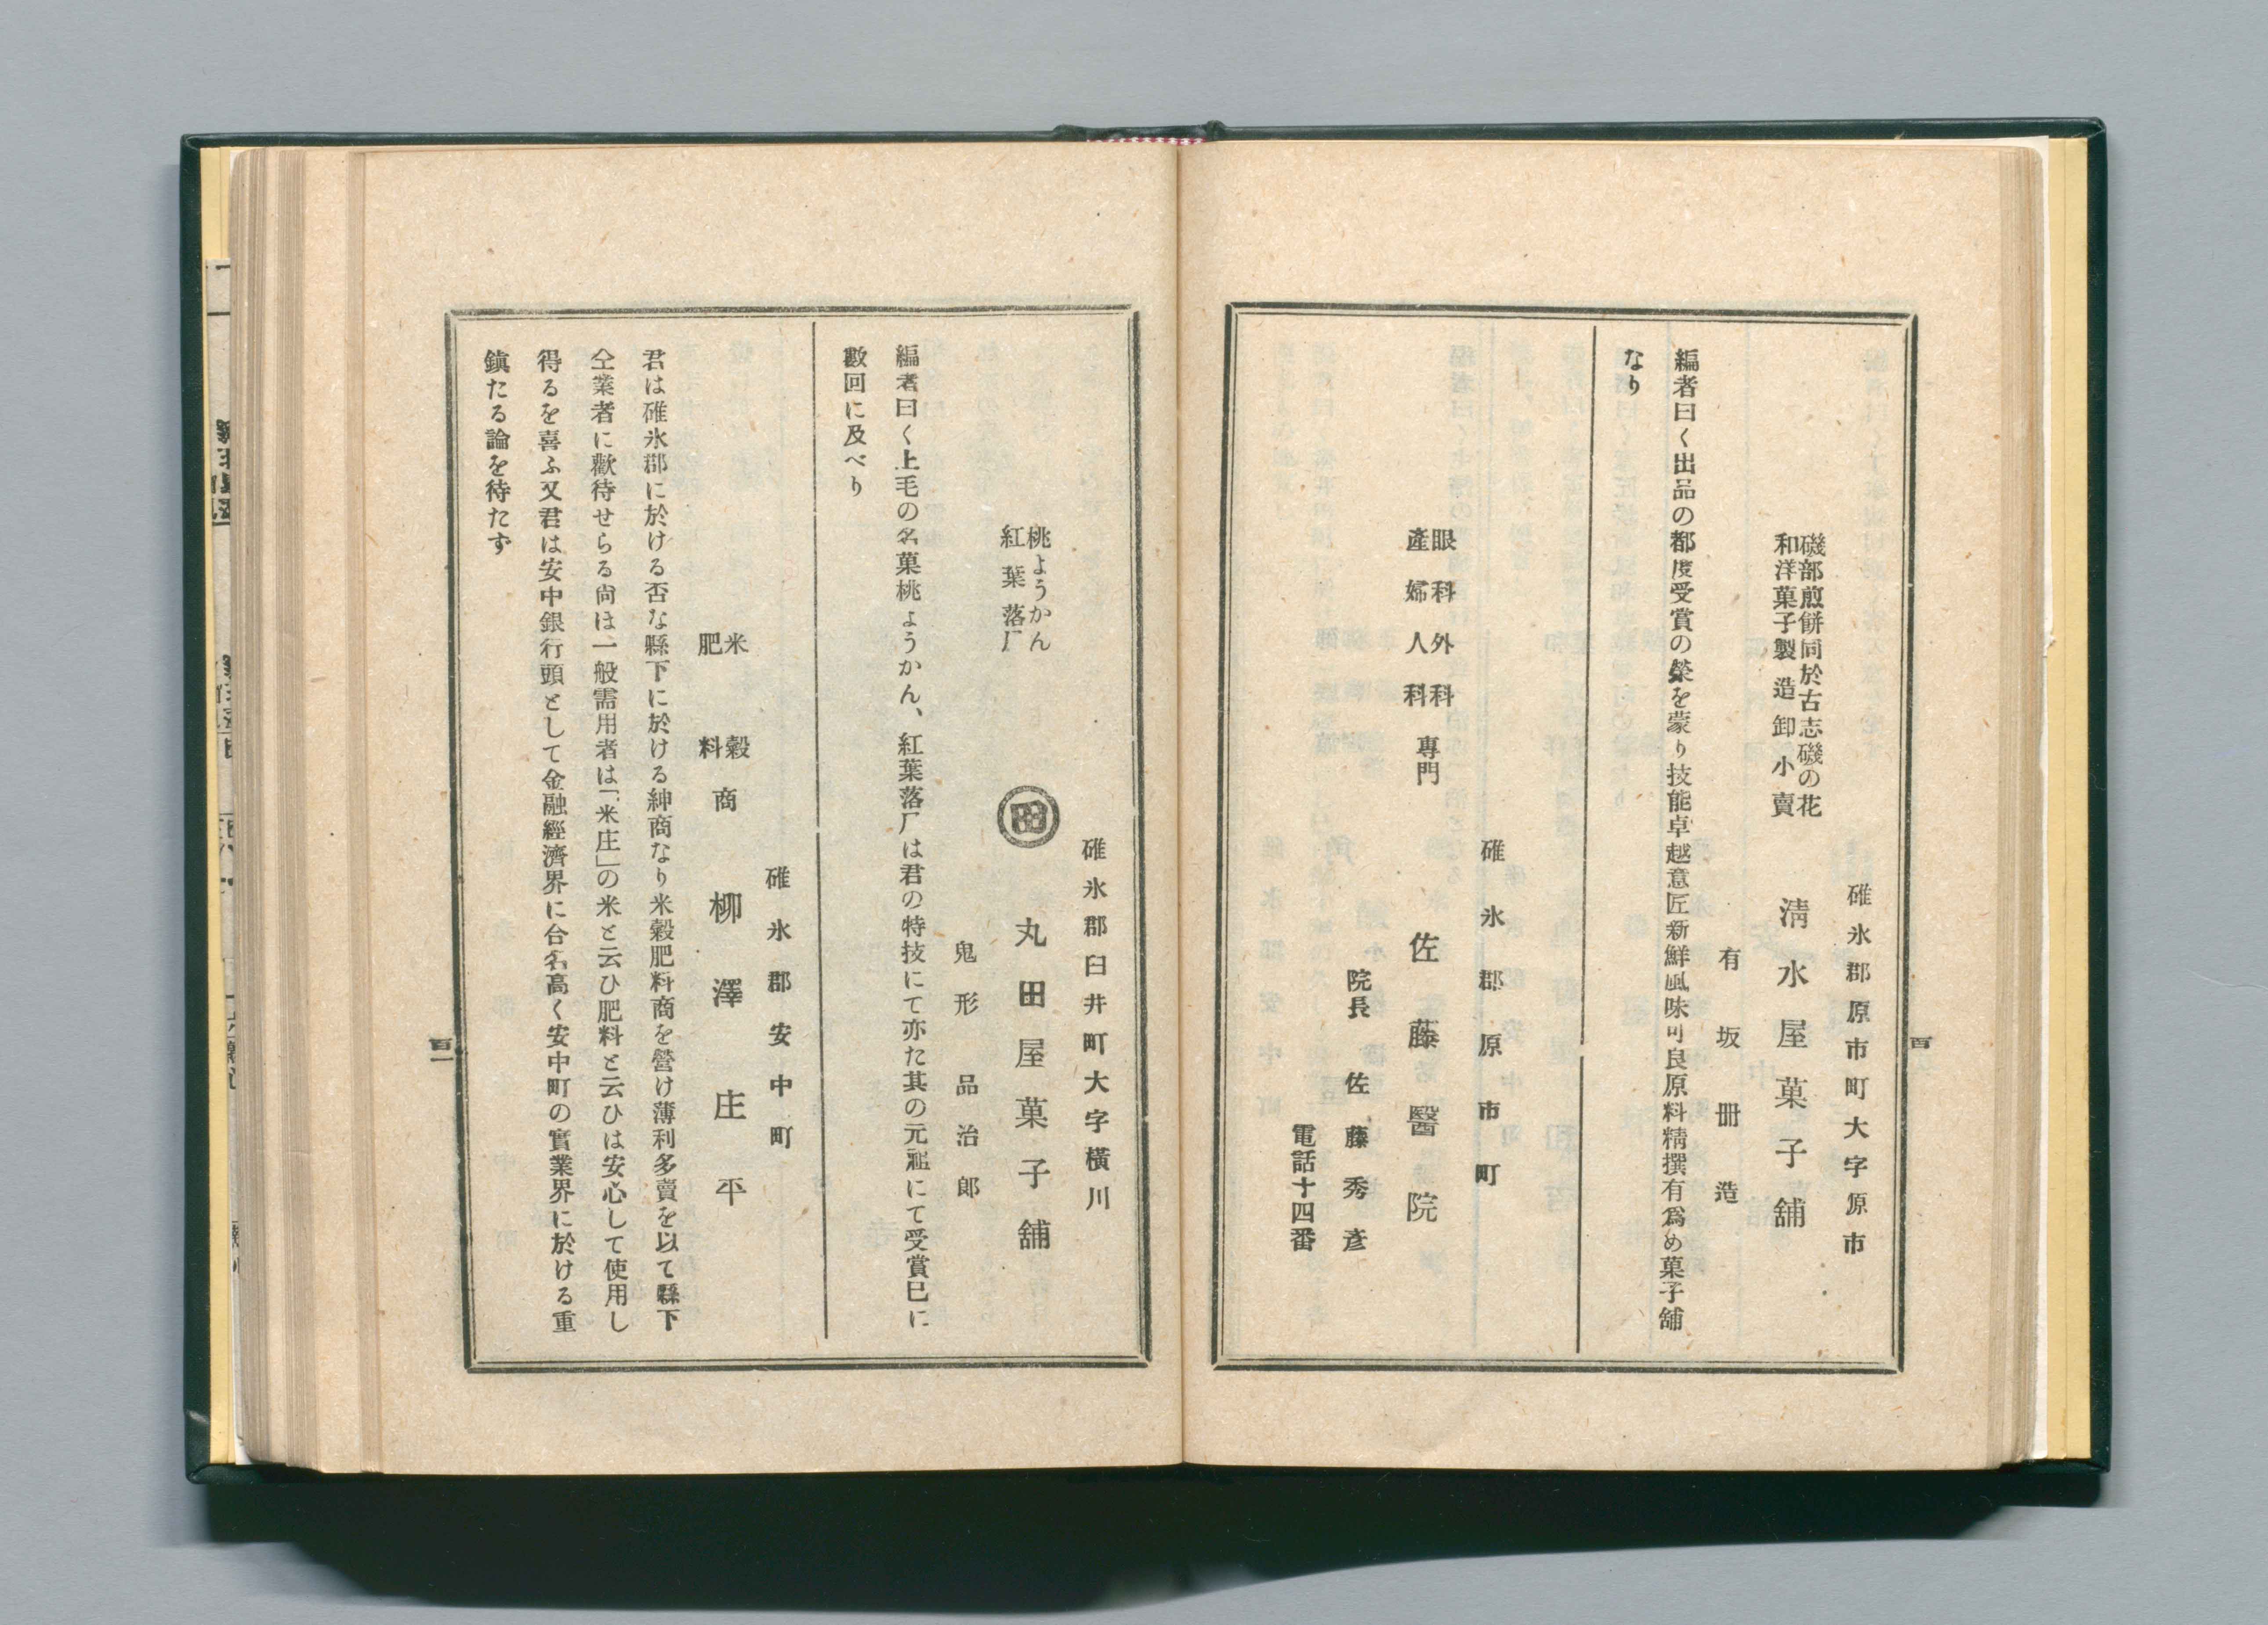 碓氷郡原市町大字原市
磯部煎餅同於古志磯の花
和洋菓子製造卸小賣
淸水屋菓子舖
有坂冊造
編者曰く出品の都度受賞の榮を蒙り技能卓越意匠新鮮風味可良原料精撰有爲め菓子舖
なり
碓氷郡原市町
眼科外科
產婦人科
專門
佐藤醫院
院長 佐藤秀彥
電話十四番
百
碓氷郡臼井町大字橫川
桃ようかん
紅葉落厂
田
丸田屋菓子舖
鬼形品治郎
編者曰く上毛の名菓桃ようかん、紅葉落厂は君の特技にて亦た其の元祖にて受賞巳に
數回に及べり
碓氷郡安中町
米穀
肥料
商
柳澤庄平
君は碓氷郡に於ける否な縣下に於ける紳商なり米穀肥料商を營け薄利多賣を以て縣下
仝業者に歡待せらる尙は一般需用者は「米庄」の米と云ひ肥料と云ひは安心して使用し
得るを喜ふ又君は安中銀行頭として金融經濟界に台名高く安中町の實業界に於ける重
鎭たる論を待たず
百一